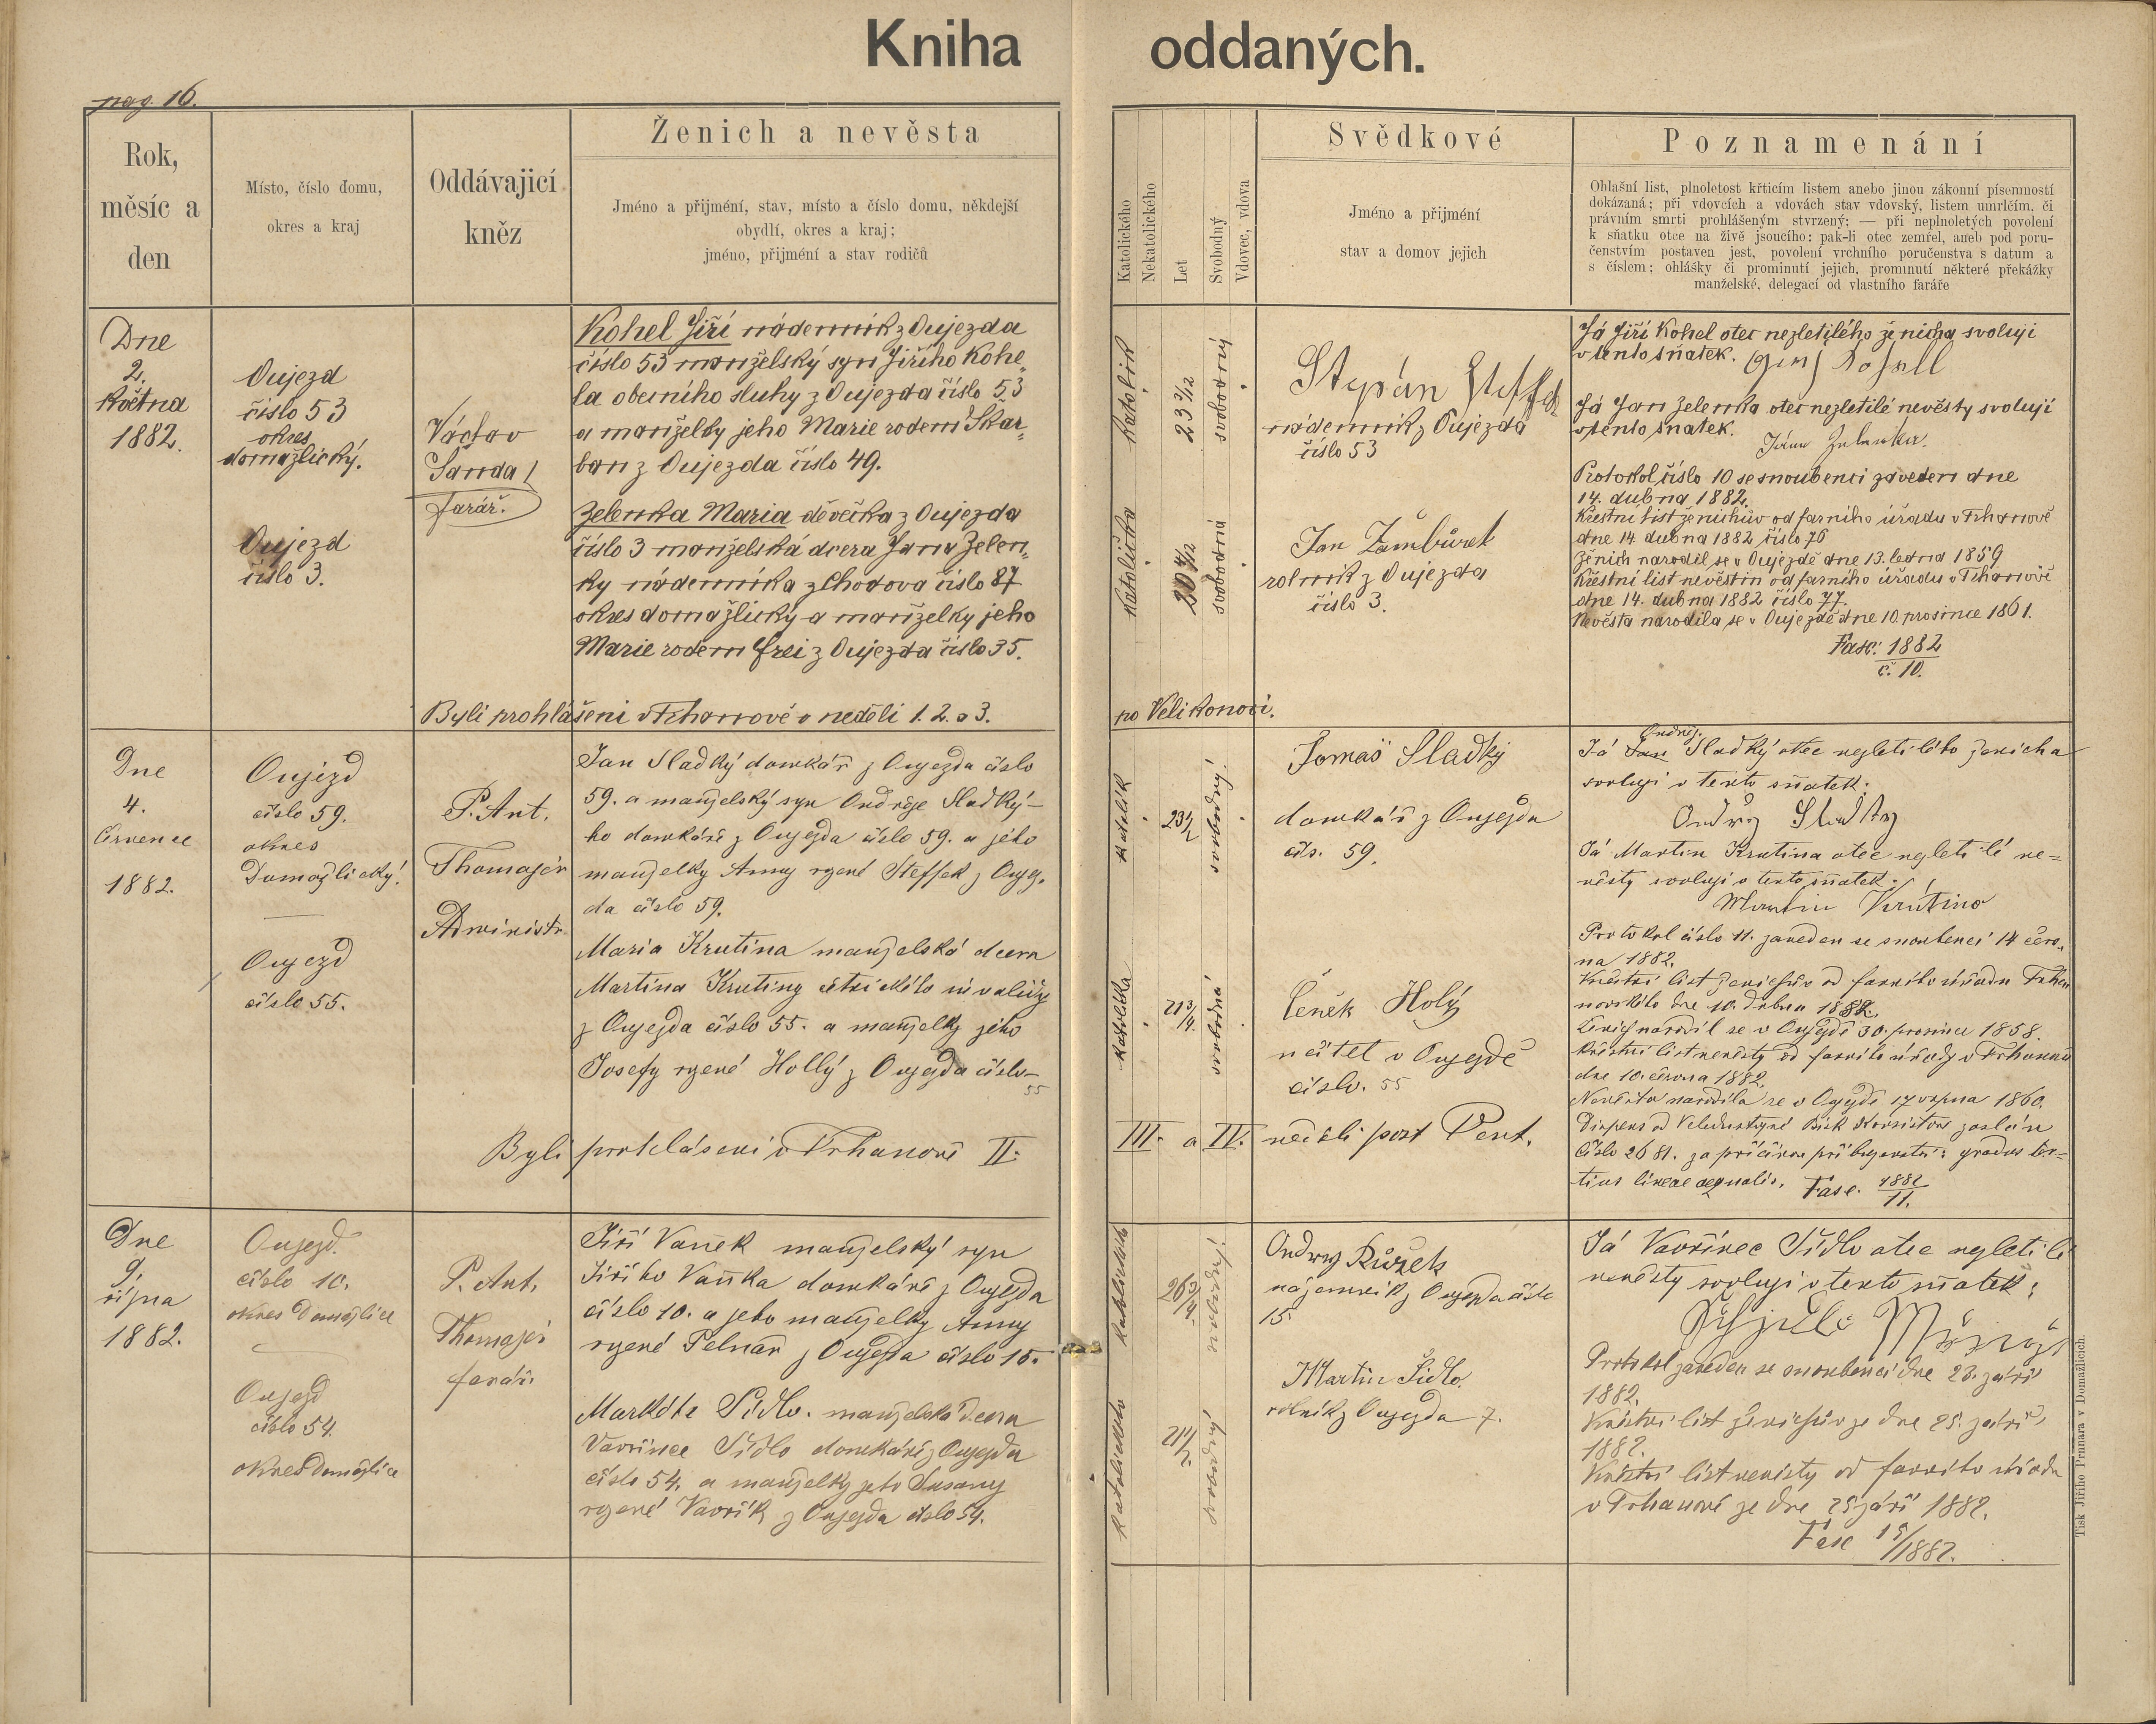 Kniha oddaných.
pag. 16.
Rok,
měsíc a
den
Místo, číslo domu,
okres a kraj
Oddávající
kněz
Ženich a nevěsta
Jméno a přijmění, stav, místo a číslo domu, někdejší
obydlí, okres a kraj;
jméno, přijmění a stav rodičů
Katolického
Nekatolického
Let
Svobodný
Vdovec, vdova
Svědkové
Jméno a přijmění
stav a domov jejich
Poznamenání
Ohlašní list, plnoletost křticím listem anebo jinou zákonní písemností
dokázaná; při vdovcích a vdovách stav vdovský, listem umrlčím, či
právním smrti prohlášeným stvrzený; — při neplnoletých povolení
k sňatku otce na živě jsoucího: pak-li otec zemřel, aneb pod poru-
čenstvím postaven jest, povolení vrchního poručenstva s datum a
s číslem; ohlášky či prominutí jejich, prominutí některé překážky
manželské, delegací od vlastního faráře
Dne
2.
Května
1882.
Oujezd
číslo 53
okres
domažlický.
Oujezd
číslo 3.
Václav
Šanda
farář.
Kohel Jiří nádenník z Oujezda
číslo 53 manželský syn Jiřího Kohe„
la obecního sluhy z Oujezda číslo 53
a manželky jeho Marie rodem Škar„
ban z Oujezda číslo 49.
Zelenka Maria děvečka z Oujezda
číslo 3 manželská dcera Jana Zelen„
ky nádenníka z Chodova číslo 87
okres domažlický a manželky jeho
Marie rodem Frei z Oujezda číslo 35.
Byli prohlášeni v Trhanově v neděli 1. 2. a 3. po Velikonoci.
Katolík
23 3/12
svobodný
Katolička
20 4/12
svobodná
Štěpán Steffek
nádenník z Oujezda
číslo 53
Jan Žambůrek
rolník z Oujezda
číslo 3.
Já Jiří Kohel otec nezletilého ženicha svoluji
v tento sňatek.
Já Jan Zelenka otec nezletilé nevěsty svoluji
v tento sňatek.
Jána Zelenka.
Protokol číslo 10 se snoubenci zaveden dne
14. dubna 1882.
Křestní list ženichův od farního úřadu v Trhanově
dne 14 dubna 1882 číslo 76
Ženich narodil se v Oujezdě dne 13. ledna 1859
Křestní list nevěstin od farního úřadu v Trhanově
dne 14. dubna 1882 číslo 77.
Nevěsta narodila se v Oujezdě dne 10 prosince 1861.
Fasc: 1882
č. 10.
Dne
4.
Července
1882.
Oujezd
číslo 59.
okres
Domažlický.
Oujezd
číslo 55.
P. Ant.
Thomayer
Administr.
Jan Sladký domkář z Oujezda číslo
59. a manželský syn Ondřeje Sladký-
ho domkáře z Oujezda číslo 59. a jeho
manželky Anny rozené Steffek z Oujez.
da číslo 59.
Maria Krutina manželská dcera
Martina Krutiny invalidy
z Oujezda číslo 55. a manželky jeho
Josefy rozené Hollý z Oujezda číslo
55
Byli prohlášeni v Trhanově II. III. a IV. neděli post Pent.
Katolík
23 1/2
svobodný
Katolička
21 3/4.
svobodná
Tomaš Sladký
domkář z Oujezda
čís. 59.
Čeněk Holý
učitel v Oujezdě
číslo. 55
Ondřej
Já Jan Sladký otec nezletilého ženicha
svoluji v tento sňatek:
Ondřej Sladky
Já Martin Krutina otec nezletilé ne=
věsty svoluji v tento sňatek:
Martin Krutina
Protokol číslo 11. zaveden se snoubenci 14 červ.
na 1882.
Křestní list ženichův od farního úřadu Trhan
novského dne 10. dubna 1882.
Ženich narodil se v Oujezdě 30. prosince 1858.
Křestní list nevěsty od farního úřadu v Trhanově
dne 10. června 1882.
Nevěsta narodila se v Oujezdě 17 srpna 1860.
Dispens od Veledůstojné Bisk. Konsistoře zaslán
číslo 2681. za příčinou příbuzenství: gradus ter=
tius lineae aequalis. Fasc. 1882
11.
Dne
9.
října
1882.
Oujezd.
číslo 10.
okres Domažlice
Oujezd
číslo 54.
okres Domažlice
P. Ant.
Thomayer
farář.
Jiří Vaněk manželský syn
Jiřího Vaňka domkáře z Oujezda
číslo 10. a jeho manželky Anny
rozené Pelnař z Oujezda číslo 15.
Markéta Šídlo. manželská dcera
Vavřince Šídlo domkáře z Oujezda
číslo 54. a manželky jeho Susany
rozené Vavřík z Oujezda číslo 54.
26 3/4
svobodný
21 1/2
svobodný
Ondrej Růžek
nájemník z Oujezda číslo
15.
Martin Šídlo.
rolník z Oujezda 7.
Já Vavřinec Šídlo otec nezletilé
nevěsty svoluji v tento sňatek:
Protokol zaveden se snoubenci dne 23. září
1882.
Křestní list ženichův ze dne 25. září
1882.
Křestní list nevěsty od farního úřadu
v Trhanově ze dne 25 září 1882.
Fasc 15/1882.
Tisk Jiřího Prunara v Domažlicích.